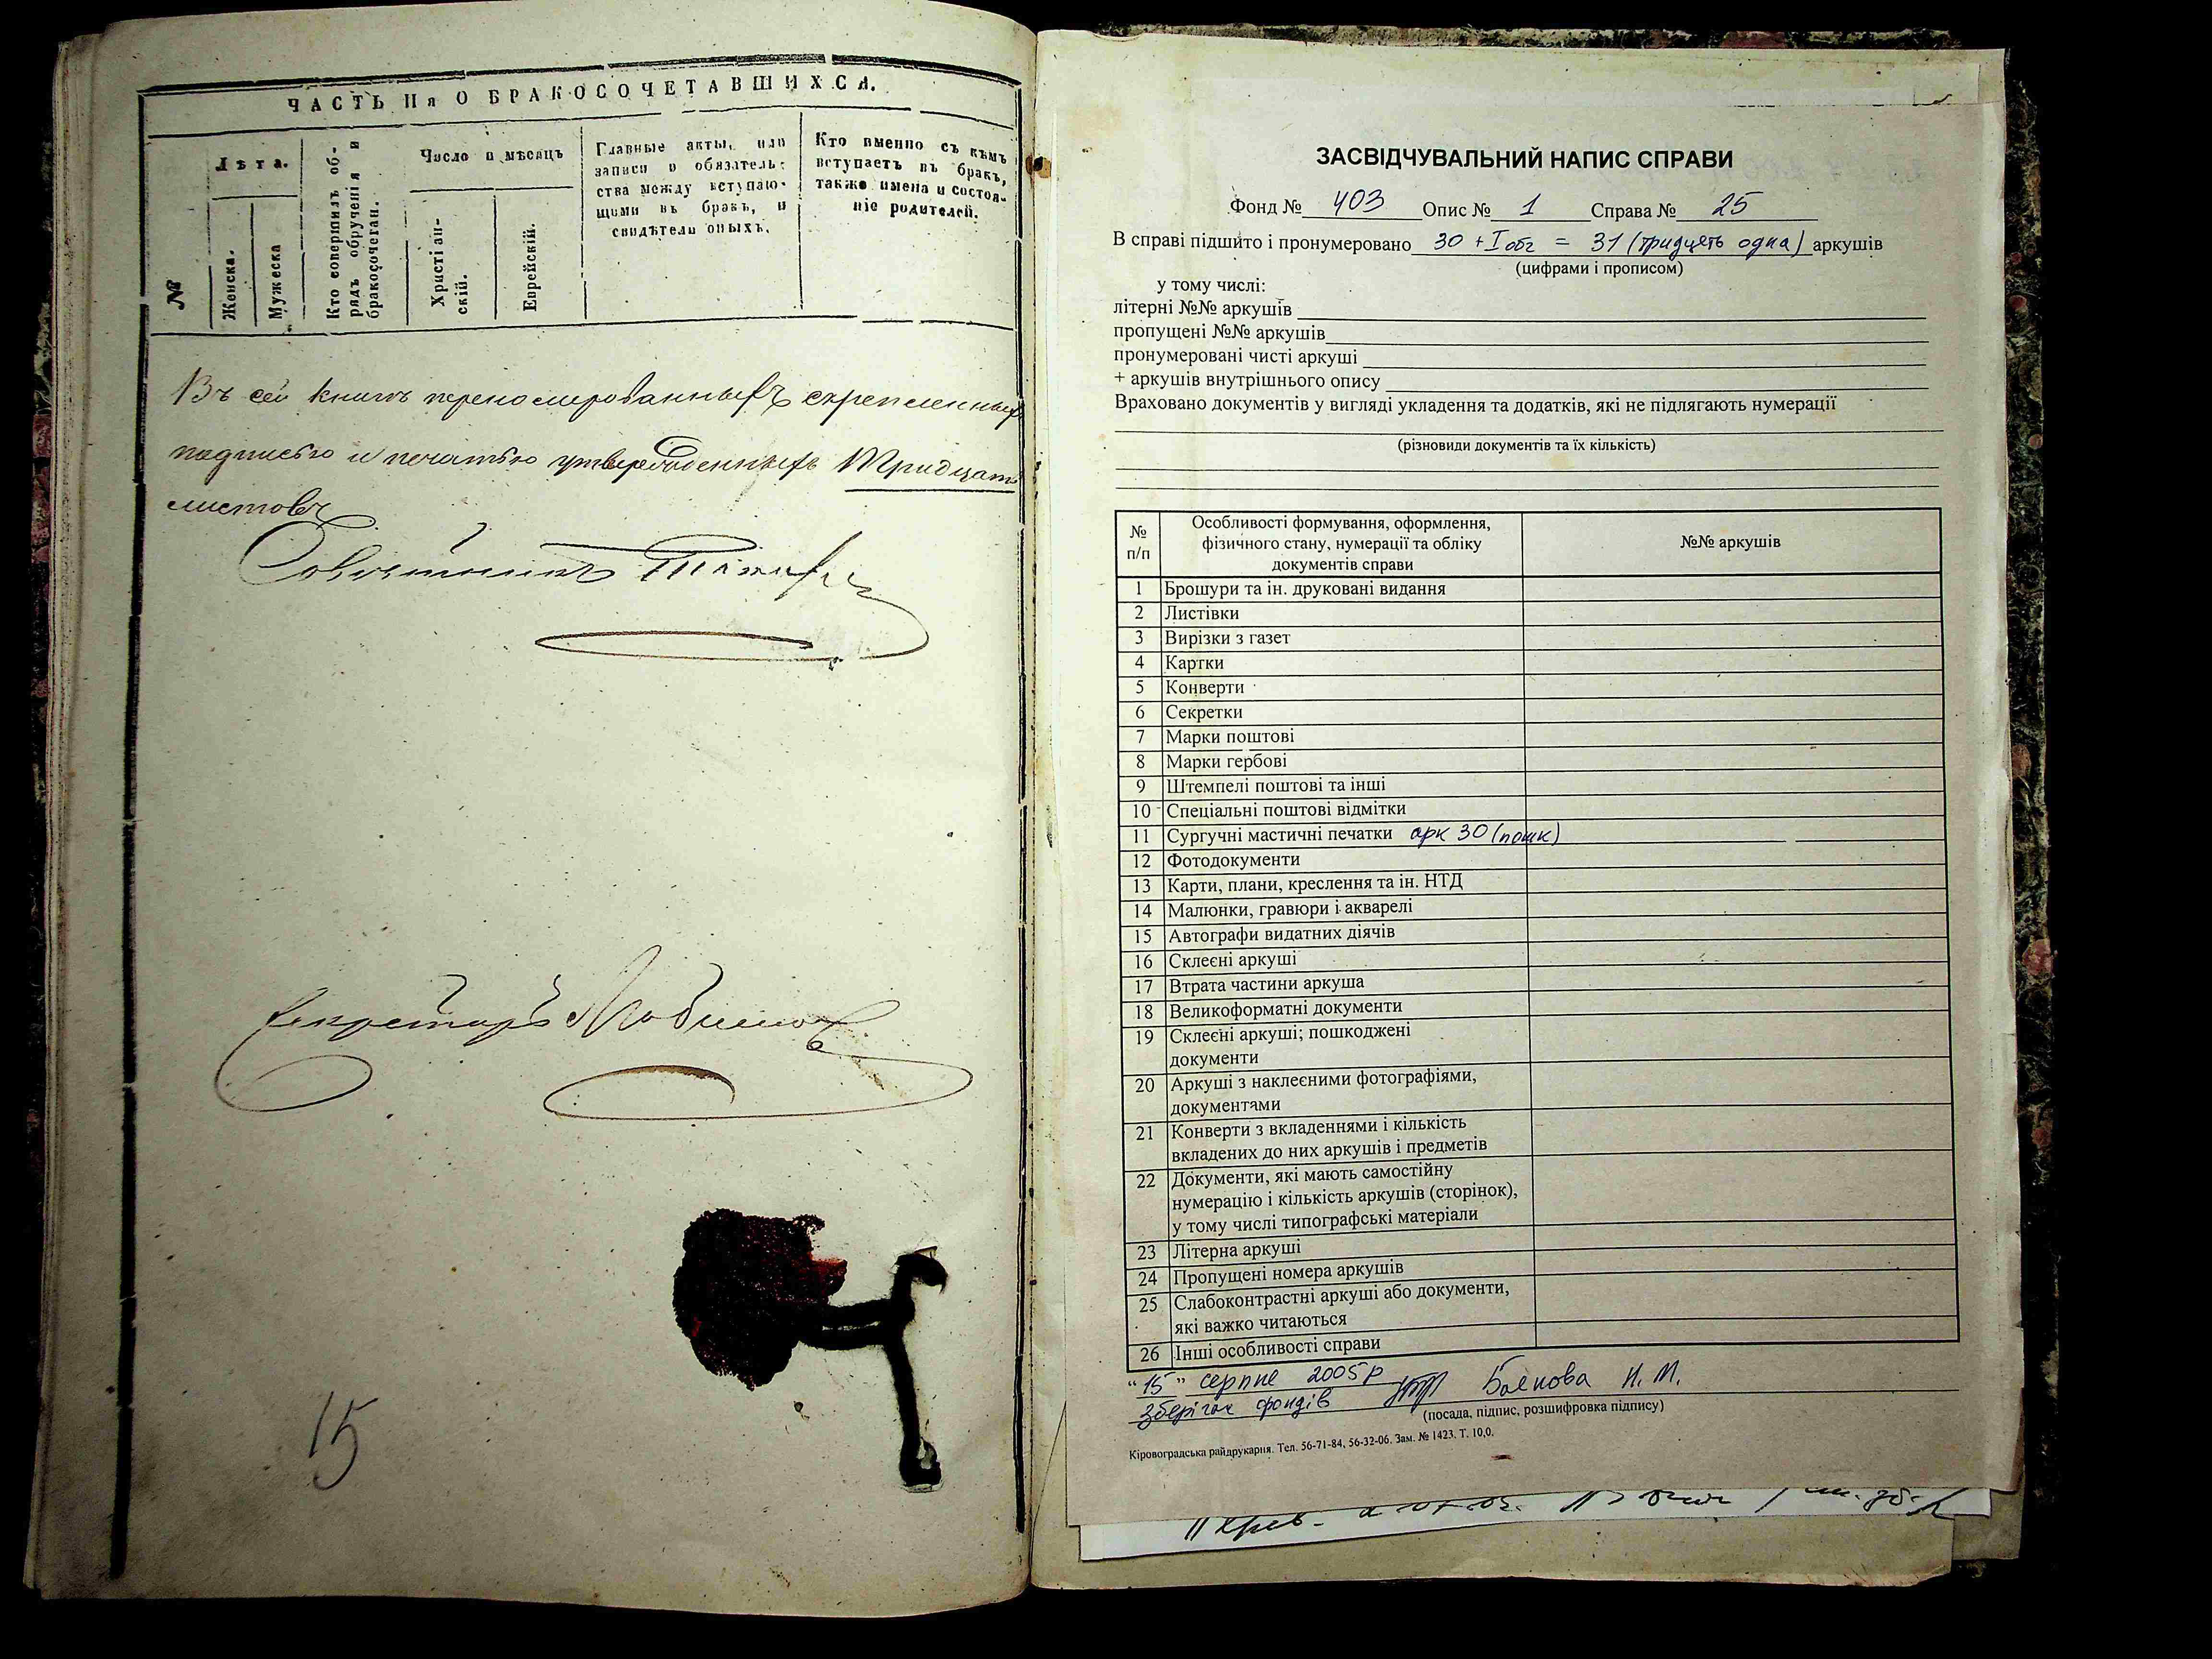 ЧАСТЬ IIя О БРАКОСОЧЕТАВШИХСЯ.
№
Лѣта.
Женска.
Мужеска
Кто совершилъ об-
рядъ обрученія и
бракосочетан.
Число и мѣсяцъ
Христіан-
скій.
Еврейскій.
Главные акты, или
записи о обязатель-
ства между вступаю-
щими въ бракъ, и
свидѣтели оныхъ.
Кто именно съ кѣмъ
вступаетъ въ бракъ,
также имена и состоя-
ніе родителей.
Въ сей книгѣ перенумерованныхъ скрепленныхъ
подписью и печатью утвержденныхъ Тридцать
листовъ
Совѣтникъ
Секретарь
15
ЗАСВІДЧУВАЛЬНИЙ НАПИС СПРАВИ
Фонд № 403 Опис № 1 Справа № 25
В справі підшито і пронумеровано 30 + I обг = 31 (тридцять одна) аркушів
(цифрами і прописом)
у тому числі:
літерні №№ аркушів
пропущені №№ аркушів
пронумеровані чисті аркуші
+ аркушів внутрішнього опису
Враховано документів у вигляді укладення та додатків, які не підлягають нумерації
(різновиди документів та їх кількість)
№ п/п
Особливості формування, оформлення,
фізичного стану, нумерації та обліку
документів справи
№№ аркушів
1 Брошури та ін. друковані видання
2 Листівки
3 Вирізки з газет
4 Картки
5 Конверти
6 Секретки
7 Марки поштові
8 Марки гербові
9 Штемпелі поштові та інші
10 Спеціальні поштові відмітки
11 Сургучні мастичні печатки арк 30 (пошк)
12 Фотодокументи
13 Карти, плани, креслення та ін. НТД
14 Малюнки, гравюри і акварелі
15 Автографи видатних діячів
16 Склеєні аркуші
17 Втрата частини аркуша
18 Великоформатні документи
19 Склеєні аркуші; пошкоджені
документи
20 Аркуші з наклеєними фотографіями,
документами
21 Конверти з вкладеннями і кількість
вкладених до них аркушів і предметів
22 Документи, які мають самостійну
нумерацію і кількість аркушів (сторінок),
у тому числі типографські матеріали
23 Літерна аркуші
24 Пропущені номера аркушів
25 Слабоконтрастні аркуші або документи,
які важко читаються
26 Інші особливості справи
"15" серпне 2005р Баєнова Н. М.
Зберігач фондів
(посада, підпис, розшифровка підпису)
Кіровоградська райдрукарня. Тел. 56-71-84, 56-32-06. Зам. № 1423. Т. 10,0.